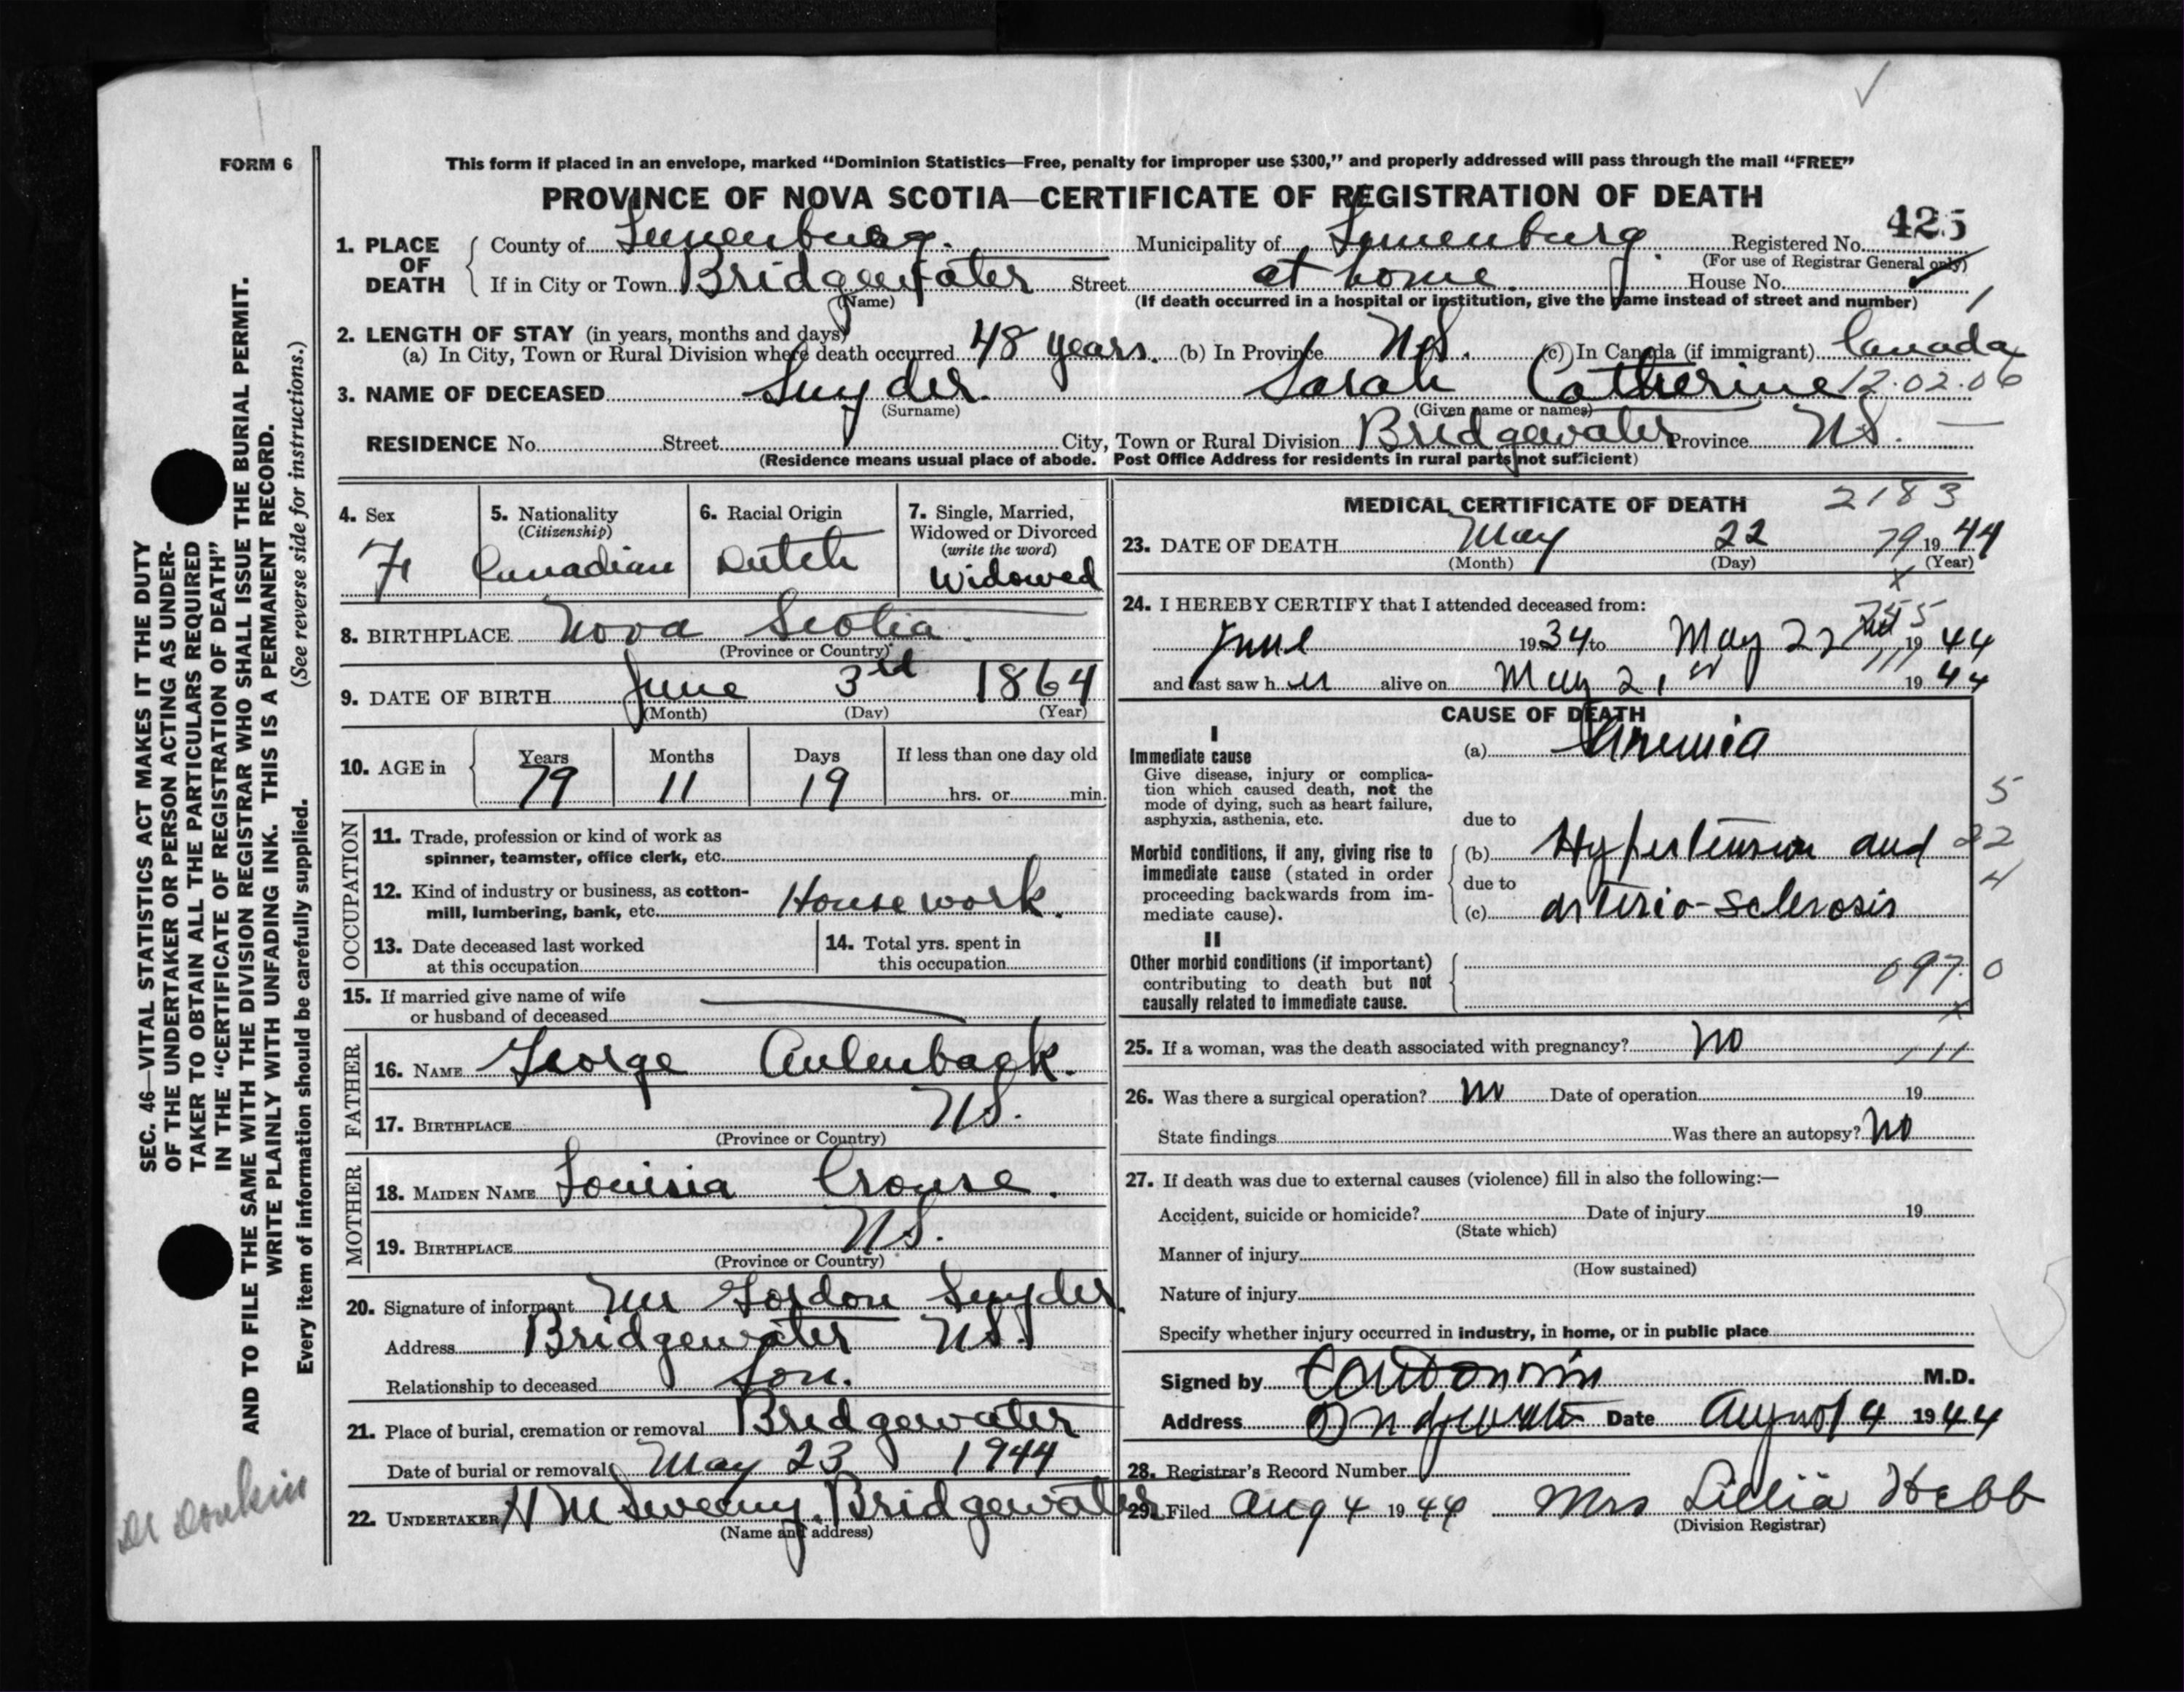 FORM 6
This form if placed in an envelope, marked “Dominion Statistics—Free, penalty for improper use $300,” and properly addressed will pass through the mail “FREE”
PROVINCE OF NOVA SCOTIA—CERTIFICATE OF REGISTRATION OF DEATH
425
1. PLACE OF DEATH County of Lunenburg. Municipality of Lunenburg Registered No.
(For use of Registrar General only)
If in City or Town Bridgewater Street at home. House No.
(Name) (If death occurred in a hospital or institution, give the name instead of street and number)
2. LENGTH OF STAY (in years, months and days)
(a) In City, Town or Rural Division where death occurred 48 years. (b) In Province N.S. (c) In Canada (if immigrant) Canada
3. NAME OF DECEASED Snyder. Sarah Catherine 12.02.06
(Surname) (Given name or names)
RESIDENCE No. Street City, Town or Rural Division Bridgewater Province N.S.
(Residence means usual place of abode. Post Office Address for residents in rural parts not sufficient)
4. Sex
F
5. Nationality
(Citizenship)
Canadian
6. Racial Origin
Dutch
7. Single, Married,
Widowed or Divorced
(write the word)
Widowed
8. BIRTHPLACE Nova Scotia.
(Province or Country)
9. DATE OF BIRTH June 3rd 1864
(Month) (Day) (Year)
10. AGE in Years Months Days If less than one day old
79 11 19 hrs. or min.
OCCUPATION
11. Trade, profession or kind of work as
spinner, teamster, office clerk, etc.
12. Kind of industry or business, as cotton-
mill, lumbering, bank, etc. Housework.
13. Date deceased last worked
at this occupation
14. Total yrs. spent in
this occupation
15. If married give name of wife
or husband of deceased
FATHER
16. NAME George Aulenback.
17. BIRTHPLACE N.S.
(Province or Country)
MOTHER
18. MAIDEN NAME Louisia Crouse.
19. BIRTHPLACE N.S.
(Province or Country)
20. Signature of informant Mr Gordon Snyder.
Address Bridgewater N.S.
Relationship to deceased Son.
21. Place of burial, cremation or removal Bridgewater
Date of burial or removal May 23 1944
22. UNDERTAKER H M Sweeny. Bridgewater
(Name and address)
MEDICAL CERTIFICATE OF DEATH 2183
23. DATE OF DEATH May 22 79 1944
(Month) (Day) (Year)
24. I HEREBY CERTIFY that I attended deceased from:
June 1934 to May 22 1944
and last saw her alive on May 21st 1944
CAUSE OF DEATH
I
Immediate cause
Give disease, injury or complica-
tion which caused death, not the
mode of dying, such as heart failure,
asphyxia, asthenia, etc.
(a) Uremia
due to
Morbid conditions, if any, giving rise to
immediate cause (stated in order
proceeding backwards from im-
mediate cause).
(b) Hypertension and
due to
(c) arterio-sclerosis
II
Other morbid conditions (if important)
contributing to death but not
causally related to immediate cause.
097.0
25. If a woman, was the death associated with pregnancy? No
26. Was there a surgical operation? No Date of operation 19
State findings Was there an autopsy? No
27. If death was due to external causes (violence) fill in also the following:—
Accident, suicide or homicide? Date of injury 19
(State which)
Manner of injury
(How sustained)
Nature of injury
Specify whether injury occurred in industry, in home, or in public place
Signed by M.D.
Address Bridgewater Date August 4 1944
28. Registrar's Record Number
29. Filed Aug 4 1944 Mrs Lillia Hebb
(Division Registrar)
SEC. 46—VITAL STATISTICS ACT MAKES IT THE DUTY
OF THE UNDERTAKER OR PERSON ACTING AS UNDER-
TAKER TO OBTAIN ALL THE PARTICULARS REQUIRED
IN THE “CERTIFICATE OF REGISTRATION OF DEATH”
AND TO FILE THE SAME WITH THE DIVISION REGISTRAR WHO SHALL ISSUE THE BURIAL PERMIT.
WRITE PLAINLY WITH UNFADING INK. THIS IS A PERMANENT RECORD.
Every item of information should be carefully supplied. (See reverse side for instructions.)
Dr Donkin